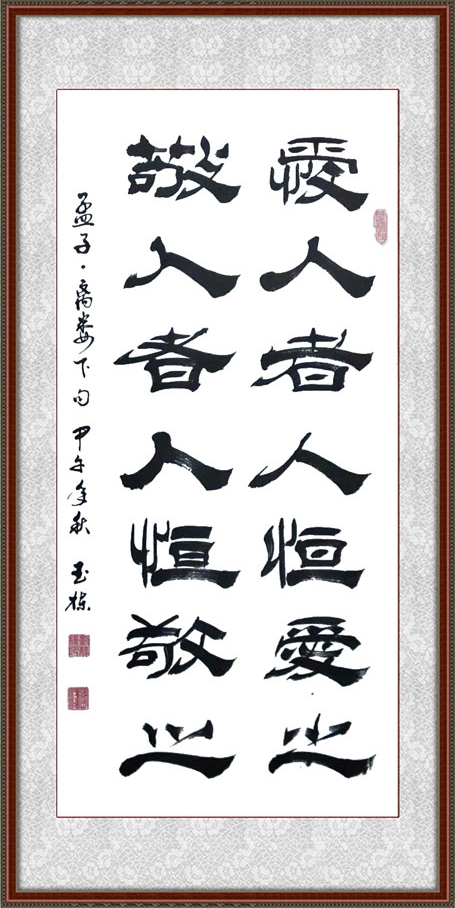 愛人者人恒愛之
敬人者人恒敬之
孟子·離娄下句 甲午年秋 玉栋